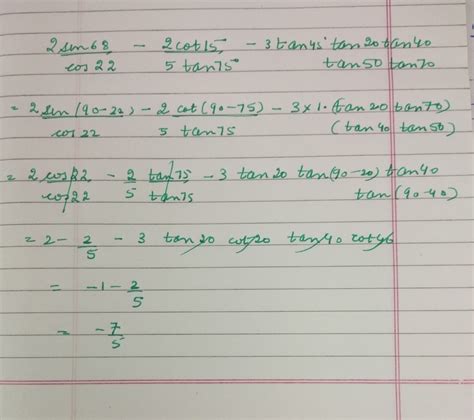 2 sin 68 / cos 22 - 2 cot 15 / 5 tan 75 - 3 tan 45° tan 20 tan 40 tan 50 tan 70
= 2 sin (90-22) / cos 22 - 2 cot (90-75) / 5 tan 75 - 3 × 1 · (tan 20 tan 70) (tan 40 tan 50)
= 2 cos 22 / cos 22 - 2/5 tan 75 / tan 75 - 3 tan 20 tan (90-20) tan 40 tan (90-40)
= 2 - 2/5 - 3 tan 20 cot 20 tan 40 cot 40
= -1 - 2/5
= -7/5